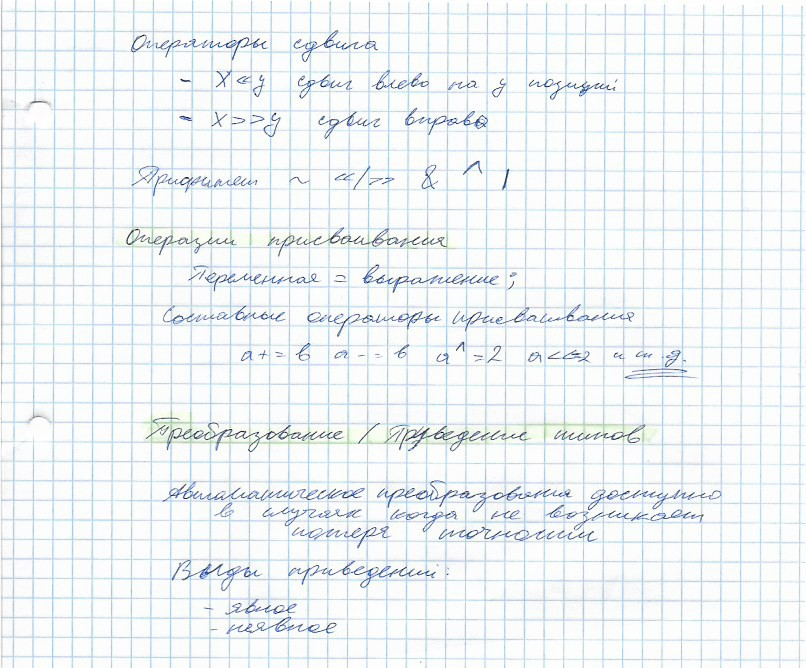 Операторы сдвига
- X<<y сдвиг влево на y позиций
- X>>y сдвиг вправо
~ <</>> & ^ |
Операции присваивания
Переменная = выражение;
Составные операторы присваивания
a+=b a-=b a^=2 a<<=2 и т.д.
Преобразование / Приведение типов
Автоматическое преобразование доступно
в случаях когда не возникает
потеря точности
Виды приведений:
- явное
- неявное